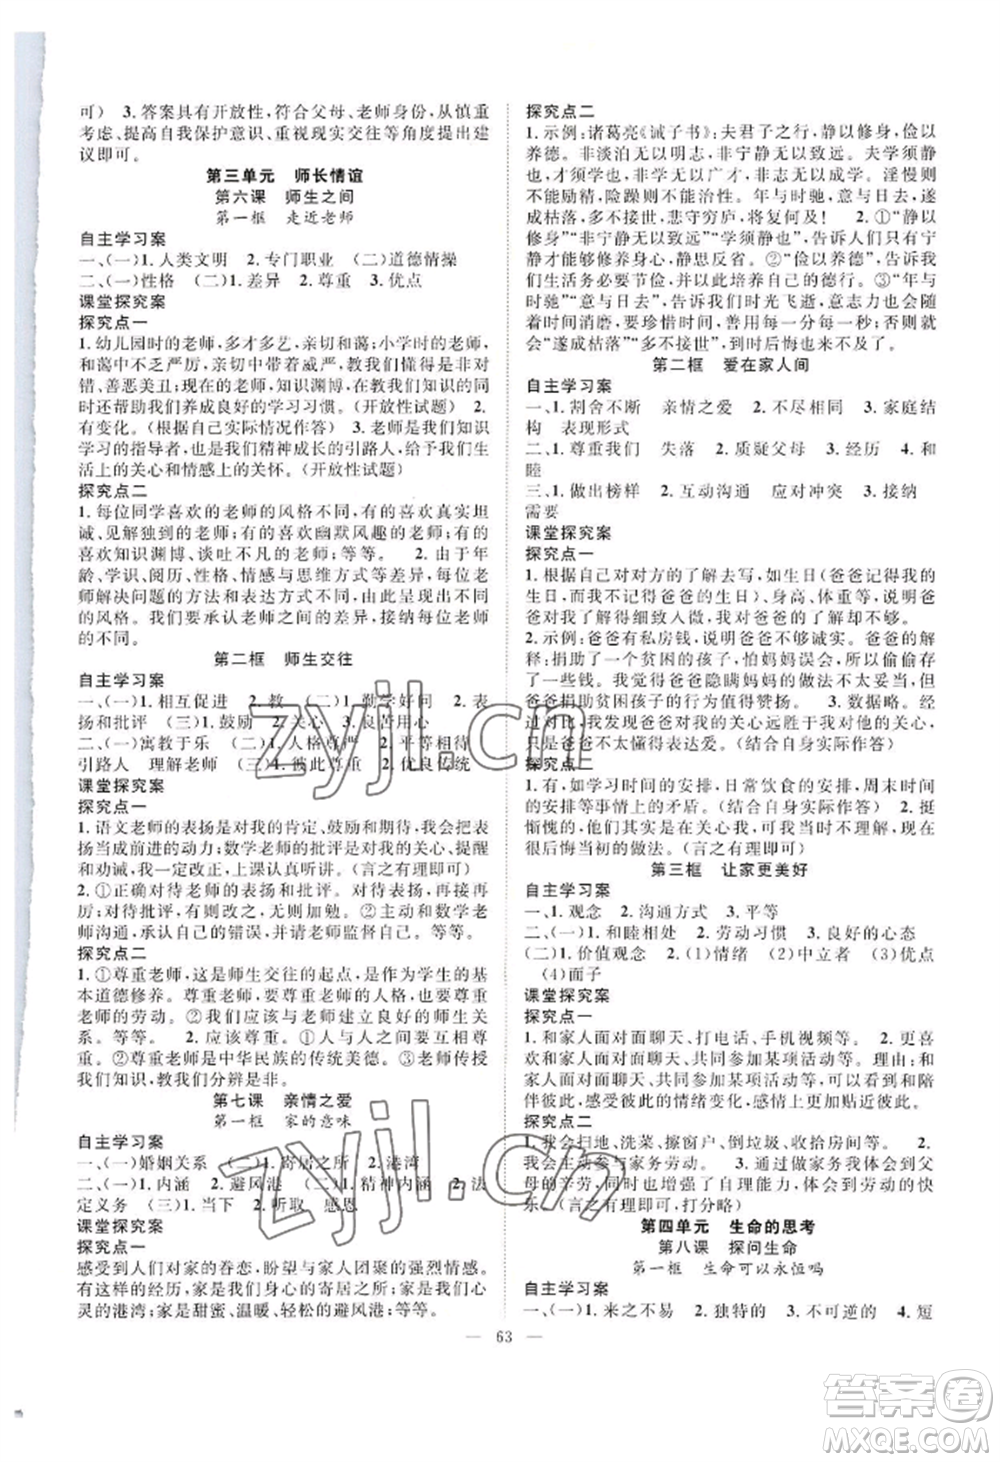 可)　3. 答案具有开放性,符合父母、老师身份,从慎重
考虑、提高自我保护意识、重视现实交往等角度提出建
议即可。
第三单元　师长情谊
第六课　师生之间
第一框　走近老师
自主学习案
一、(一)1. 人类文明　2. 专门职业　(二)道德情操
二、(一)性格　(二)1. 差异　2. 尊重　3. 优点
课堂探究案
探究点一
1. 幼儿园时的老师,多才多艺,亲切和蔼;小学时的老师,
和蔼中不乏严厉,亲切中带着威严,帮助我们分析是非对
错、善恶美丑;现在的老师,知识渊博,在传授知识的同
时还帮助我们养成良好的学习习惯。(开放性试题)　2.
有变化。(根据自己实际情况作答)　3. 老师是我们知识
学习的指导者,也是我们精神成长的引路人,给我们以生
活上的关心和情感上的关怀。(开放性试题)
探究点二
1. 每位同学喜欢的老师的风格不同,有的喜欢真实坦
诚、见解独到的老师;有的喜欢幽默风趣的老师;有的
喜欢知识渊博、谈吐不凡的老师;等等。　2. 由于年
龄、学识、阅历、性格、情感与思维方式等差异,每位老
师解决问题的方法和表达方式不同,呈现出各自不同
的风格。我们要承认老师之间的差异,接纳每位老师
的不同。
第二框　师生交往
自主学习案
一、(一)1. 相互促进　2. 教　(二)1. 勤学好问　2. 表
扬和批评　(三)1. 鼓励　2. 关心　3. 良苦用心
二、(一)寓教于乐　(二)1. 人格尊严　2. 平等相待
引路人　理解老师　(三)1. 彼此尊重　2. 优良传统
课堂探究案
探究点一
1. 语文老师的表扬是对我的肯定、鼓励和期待,我会把表
扬当成前进的动力;数学老师的批评是对我的关心、提醒
和劝诫,我一定改正,上课认真听讲。(言之有理即可)
2. ①正确对待老师的表扬和批评。对待表扬,再接再
厉;对待批评,有则改之,无则加勉。②主动和数学老
师沟通,承认自己的错误,并请老师监督自己。等等。
探究点二
1. ①尊重老师,这是师生交往的起点,是作为学生的基
本道德修养。尊重老师的人格,有礼貌地对待老师,尊
重老师的劳动。②与老师建立良好的师生关
系。等等。　2. 应该尊重。①人与人之间要互相尊
重。②尊重老师是中华民族的传统美德。③老师传授
我们知识,教我们分辨是非。
第七课　亲情之爱
第一框　家的意味
自主学习案
一、(一)婚姻关系　(二)1. 寄居之所　2. 港湾
二、(一)1. 内涵　2. 避风港　(二)1. 精神内涵　2. 法
定义务　(三)1. 当下　2. 听取　感恩
课堂探究案
探究点一
感受到人们对家的眷恋,盼望与家人团聚的强烈情感。
有这样的经历,家是身心的寄居之所;家是我们身心
灵的港湾;家是甜蜜、温暖、轻松的避风港;等等。
探究点二
1. 示例:诸葛亮《诫子书》:夫君子之行,静以修身,俭以
养德。非淡泊无以明志,非宁静无以致远。夫学须静
也,才须学也,非学无以广才,非志无以成学。淫慢则不
能励精,险躁则不能治性。年与时驰,意与日去,
遂成枯落,多不接世,悲守穷庐,将复何及!　2. ①“静以
修身”“非宁静无以致远”“学须静也”,告诉我们只有宁
静才能够修养身心,静思反省。②“俭以养德”,告诉我
们要处处注意节俭,以此培养自己的德行。③“年与
时驰”“意与日去”,告诉我们时光飞逝,意志力也会
随时间消磨,要珍惜时间,多做有意义的事情;否则就
会“遂成枯落”“多不接世”,到时后悔已经晚了。
第二框　爱在家人间
自主学习案
一、1. 割舍不断　亲情之爱　2. 不尽相同　3. 家庭结
构　表现形式
二、1. 尊重我们　失落　2. 质疑父母　3. 经历　4. 和
睦
三、1. 做出榜样　2. 互动沟通　应对冲突　3. 接纳
需要
课堂探究案
探究点一
1. 根据自己对对方的了解去写,如生日(爸爸记得我的
生日,而我不记得爸爸的生日)、身高、体重等,发现爸
爸对我了解得很多,而我对爸爸了解却不够。
2. 示例:爸爸有私房钱,与妈妈发生争吵。爸爸的
解释:资助了一个贫困的孩子,怕妈妈误会。我的理解:
爸爸捐助贫困孩子的行为值得赞扬。　3. 数据略。经
过对比,我发现爸爸对我的关心远远胜于我对他的关心,
只是爸爸不太擅长表达。(结合自身实际作答)
探究点二
1. 有,如学习时间的安排,日常饮食的安排,周末时间
的安排等事情上的矛盾。(结合自身实际作答)　2. 挺
惭愧的,其实家人都是在关心我,我当时不理解,现在
很后悔当初的做法。(言之有理即可)
第三框　让家更美好
自主学习案
一、1. 观念　2. 沟通方式　3. 平等
二、(一)1. 和睦相处　2. 劳动习惯　3. 良好的心态
(二)1. 价值观念　2. (1)情绪　(2)中立者　(3)优点
(4)面子
课堂探究案
探究点一
1. 和家人面对面聊天、打电话、手机视频等。　2. 更喜
欢和家人面对面聊天、共同参加某项活动。理由:和
家人面对面聊天,共同参加某项活动等,可以感受到陪
伴,还能感受到彼此的情绪变化,交流更加深入。
探究点二
1. 我会扫地、洗菜、擦窗户、倒垃圾、收拾房间。　2. 我
会主动参与家务劳动。做家务的过程中,可以体会父
母的辛劳,不仅能提高自己的自理能力,还能体会劳动的快
乐。(言之有理即可,打分略)
第四单元　生命的思考
第八课　探问生命
第一框　生命可以永恒吗
自主学习案
一、(一)1. 来之不易　2. 独特的　3. 不可逆的　4. 短
— 63 —
zyjl.cn
zyjl.cn
答案圈
MXQE.COM